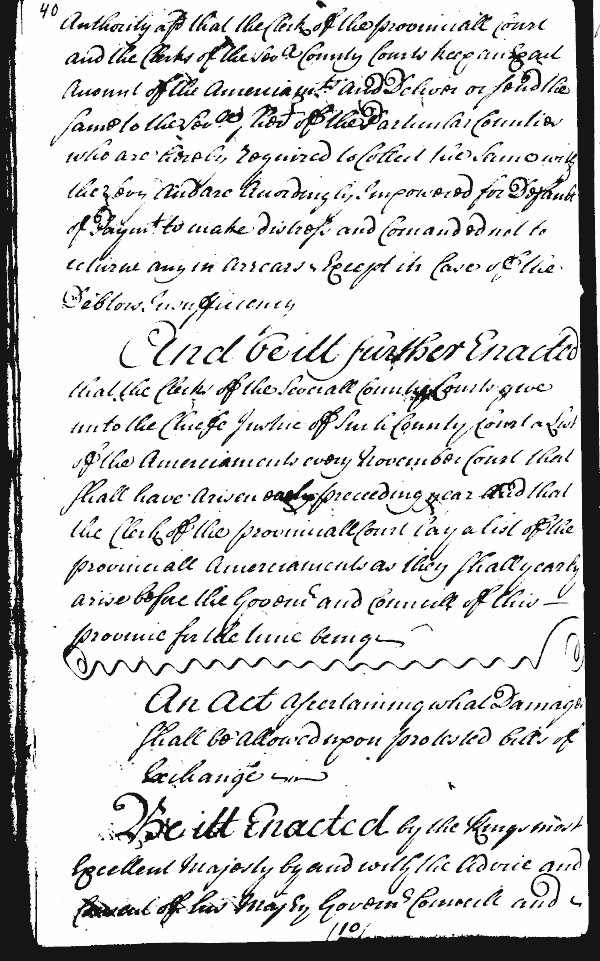 40
Authority afsd that the Clerk of the Provinciall Court
and the Clerks of the Sevll County Courts keep an Exact
Amount of the Amerciamts And Deliver or send the
same to the Sevll Sheriffs of the Particular Counties
who are hereby required to Collect the same with
the Levy And are Accordingly Impowered for Default
of Paymt to make distress and Comanded not to
returne any in Arrears Except in Case of the
Debtors Insufficiency
And be itt further Enacted
that the Clerks of the Severall County Courts give
unto the Chiefe Justice of Such County Court a List
of the Amerciaments every November Court that
Shall have Arisen preceeding year And that
the Clerk of the Provinciall Court Lay a list of the
Provinciall Amerciaments as they Shall yearly
arise before the Govern.r and Councill of this
Province for the time being
An Act Ascertaining what Damage
Shall be Allowed upon protested bills of
Exchange
Be itt Enacted by the Kings most
Excellent Majesty by and with the Advice and
Consent of his Majtys Govern.r Councill and
(10)